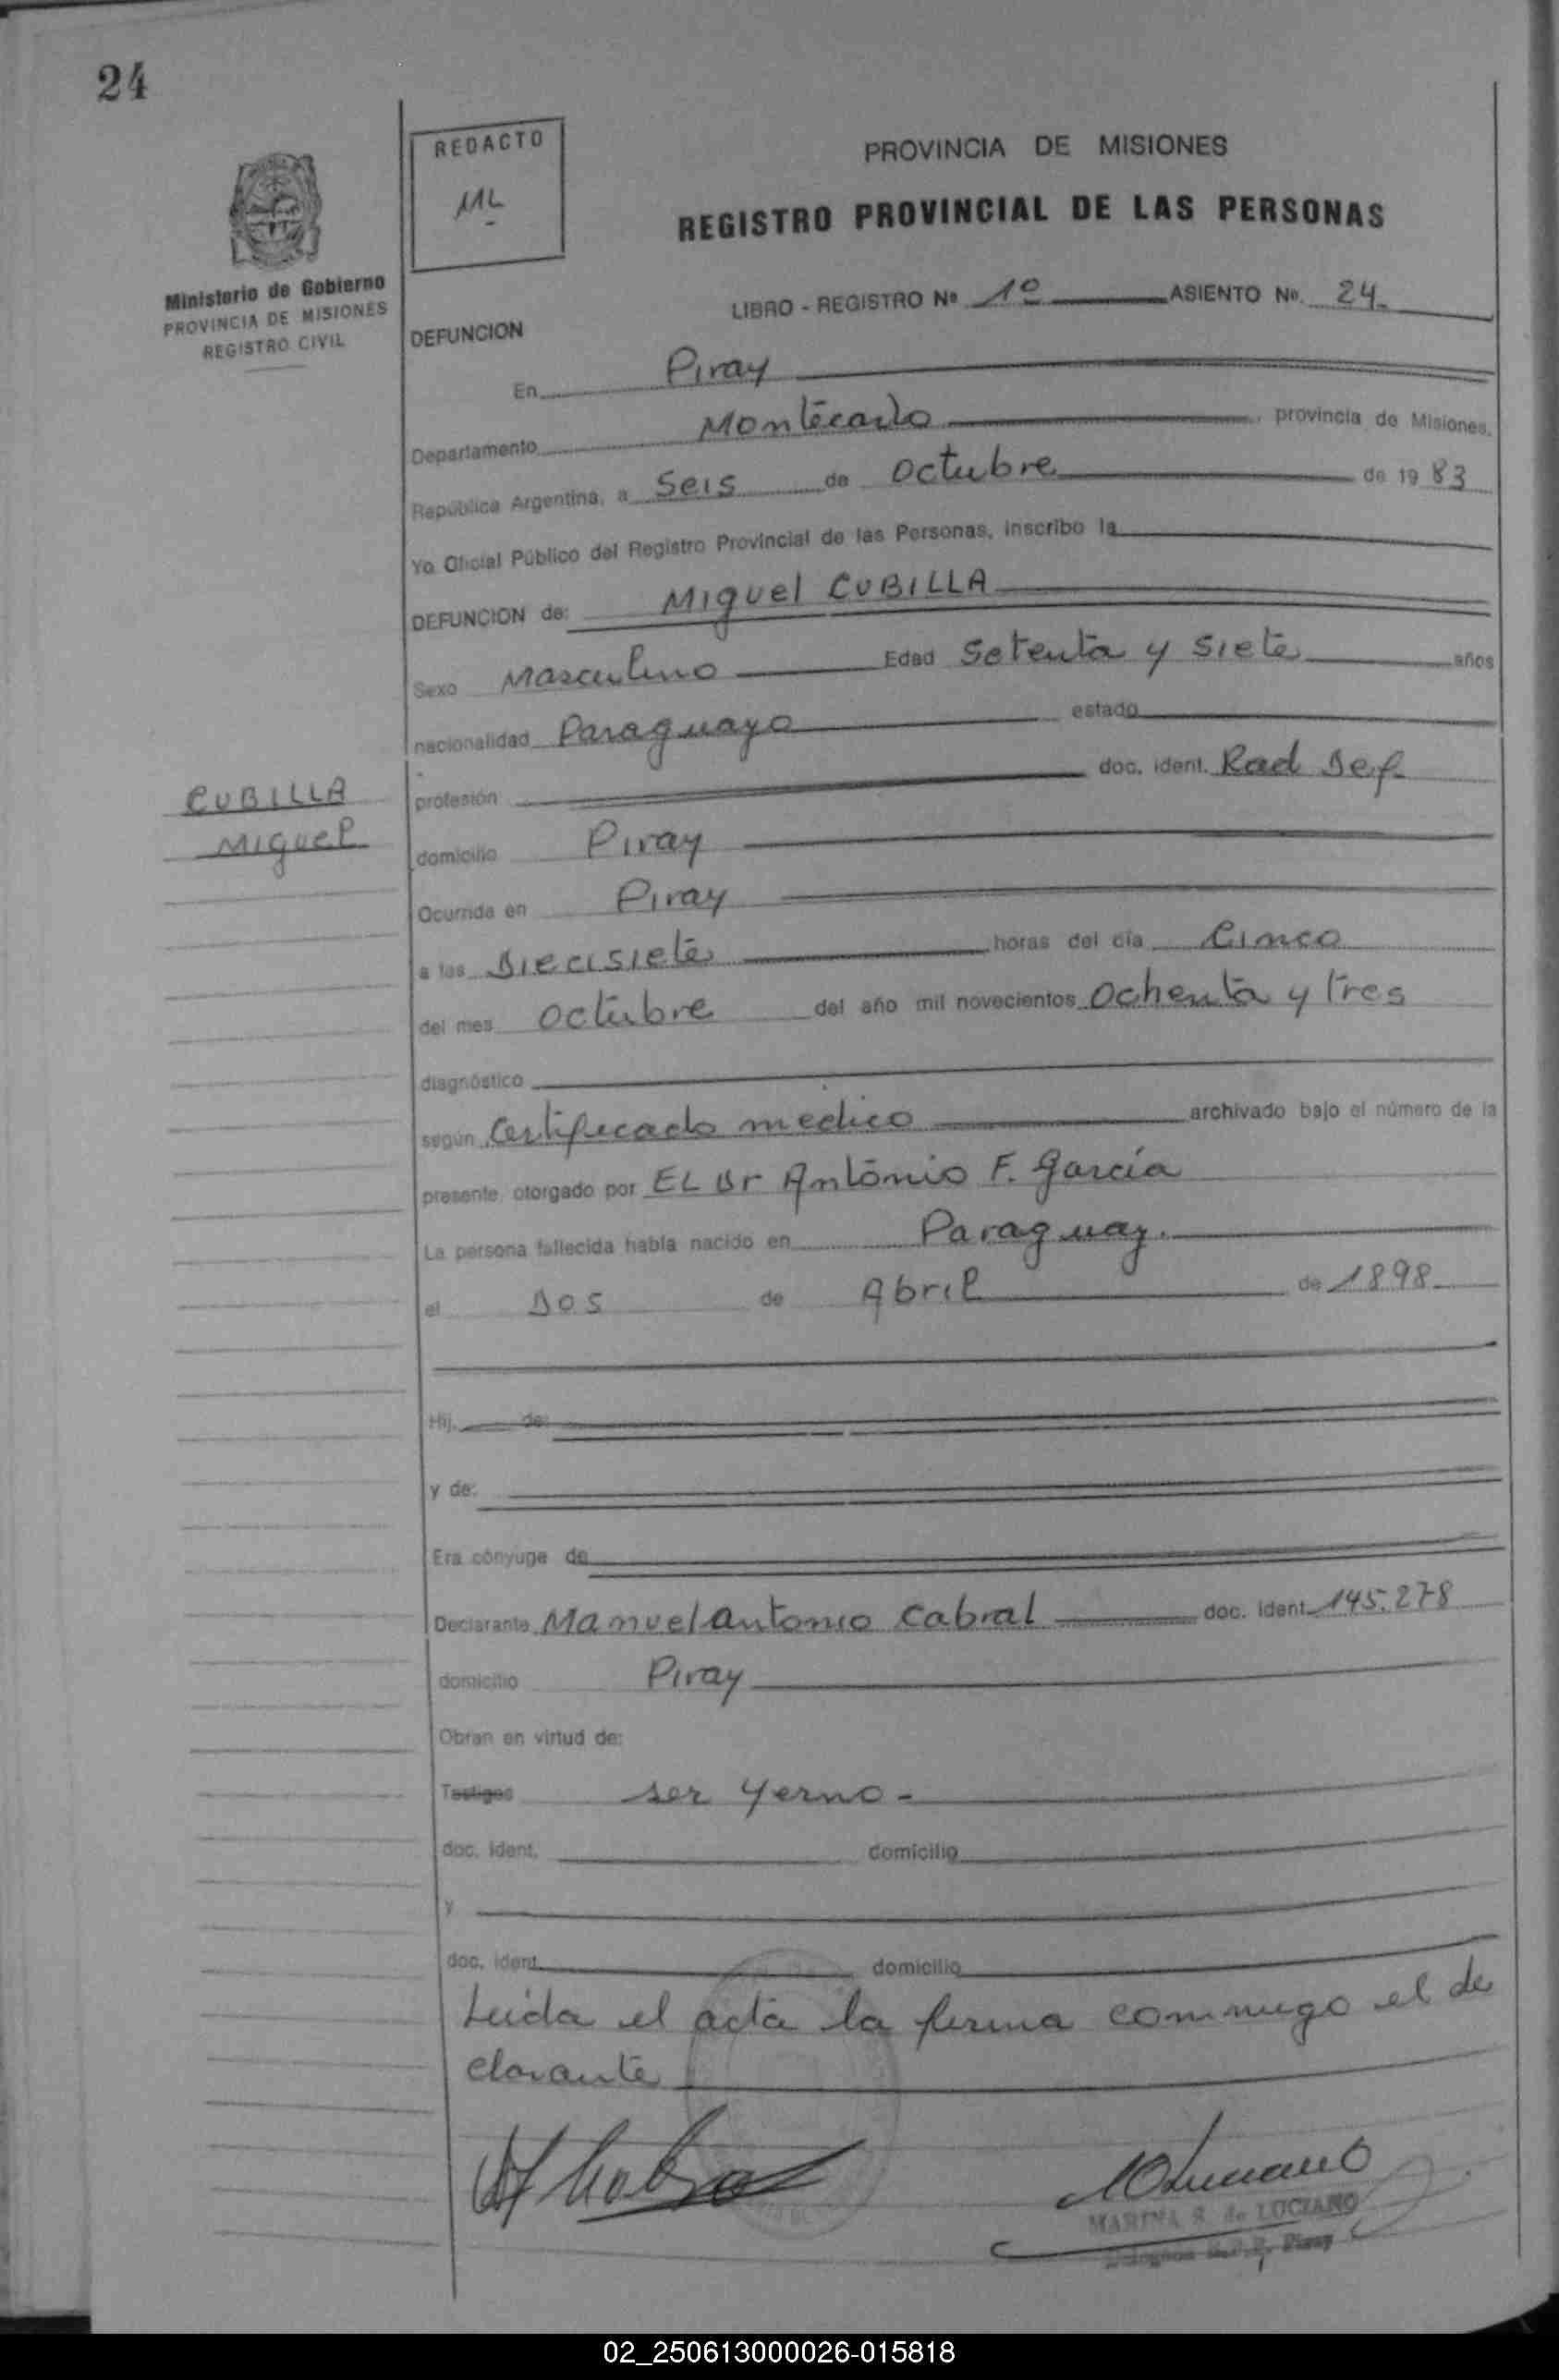 24
REDACTO
ML
PROVINCIA DE MISIONES
REGISTRO PROVINCIAL DE LAS PERSONAS
Ministerio de Gobierno
PROVINCIA DE MISIONES
REGISTRO CIVIL
LIBRO - REGISTRO Nº 1º ASIENTO Nº. 24.
DEFUNCION
En Piray
Departamento Montecarlo, provincia de Misiones,
República Argentina, a Seis de Octubre de 1983
Yo Oficial Público del Registro Provincial de las Personas, inscribo la
DEFUNCION de: Miguel CUBILLA
Sexo Masculino Edad Setenta y Siete años
nacionalidad Paraguayo estado
profesión doc. ident. Rad Def
CUBILLA
Miguel
domicilio Piray
Ocurrida en Piray
a las Diecisiete horas del día Cinco
del mes Octubre del año mil novecientos Ochenta y Tres
diagnóstico
según Certificado medico archivado bajo el número de la
presente, otorgado por EL Dr Antonio F. García
La persona fallecida había nacido en Paraguay.
el Dos de Abril de 1898
Hij de:
y de:
Era cónyuge de
Declarante Manuel antonio Cabral doc. ident. 145.278
domicilio Piray
Obran en virtud de:
Testigos ser yerno -
doc. ident. domicilio
y
doc. ident. domicilio
Leida el acta la firma conmigo el de
clarante
MARINA R. de LUCIANO
Piray
02_250613000026-015818